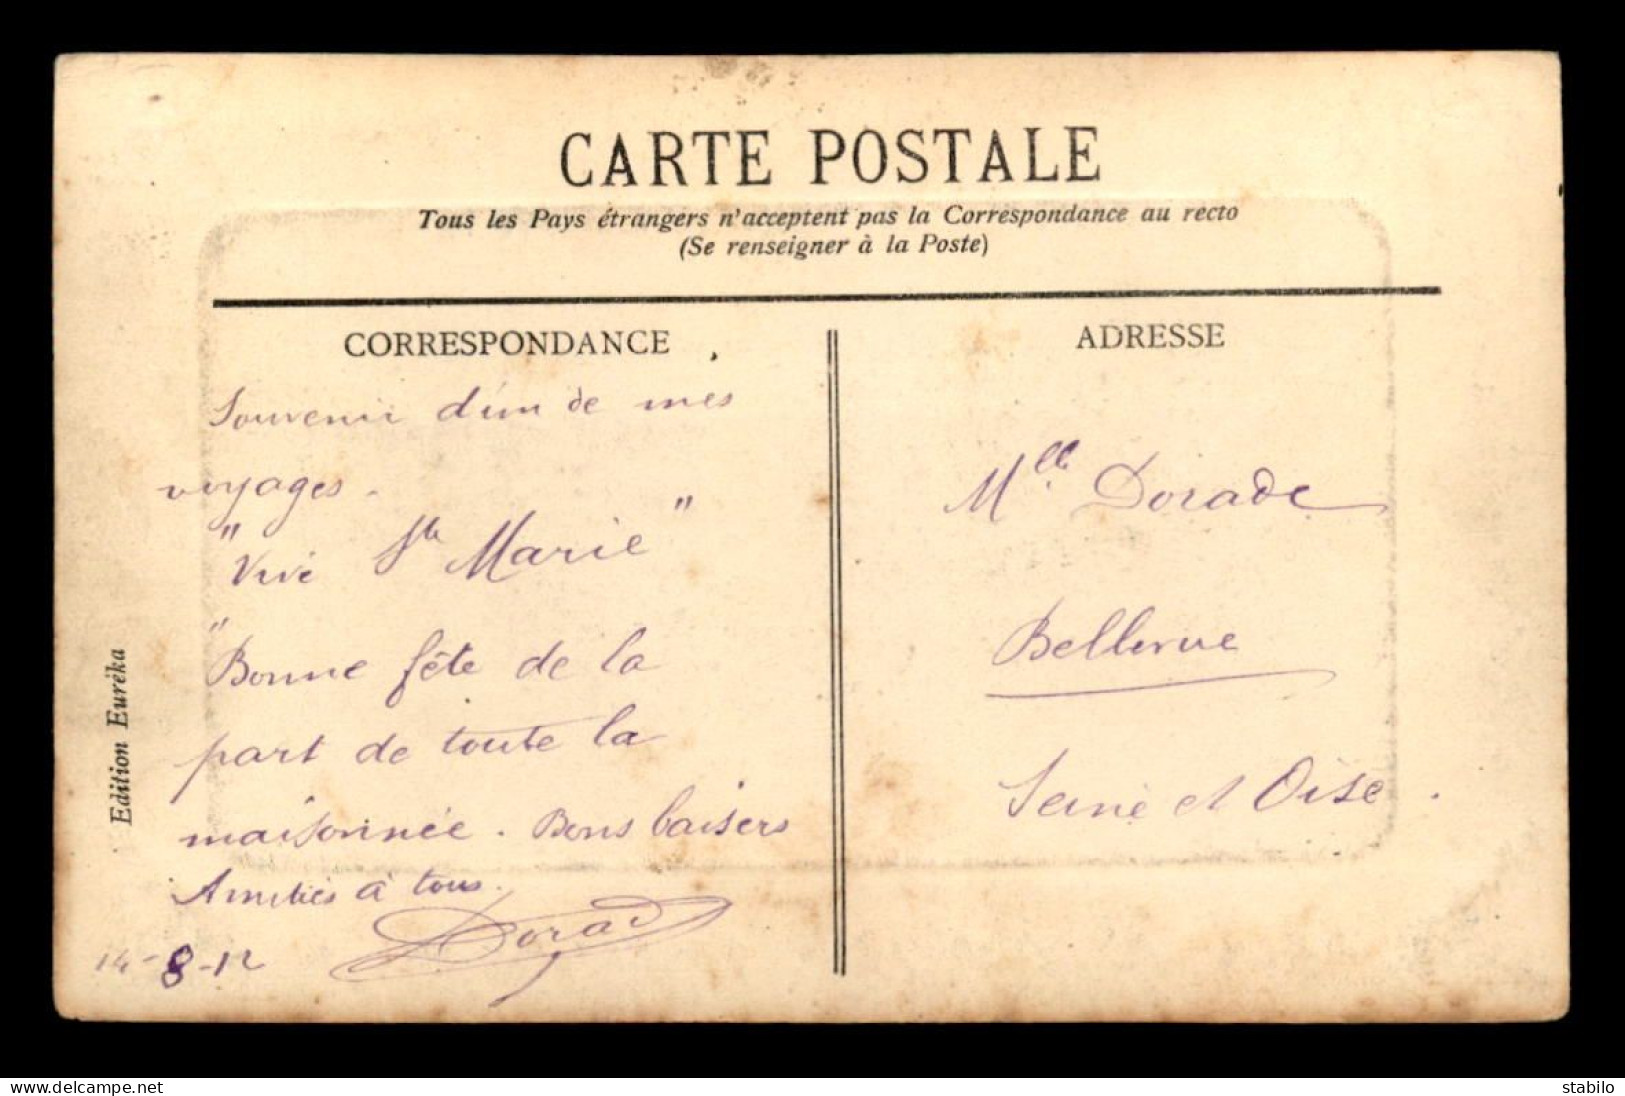 CARTE POSTALE
Tous les Pays étrangers n'acceptent pas la Correspondance au recto
(Se renseigner à la Poste)
CORRESPONDANCE
Souvenir d'un de mes
voyages.
"Vive Ste Marie"
"Bonne fête de la
part de toute la
maisonnée. Bons baisers
Amitiés à tous.
14-8-12
Edition Eurêka
ADRESSE
Mlle Dorade
Bellevue
Seine et Oise.
www.delcampe.net
stabilo